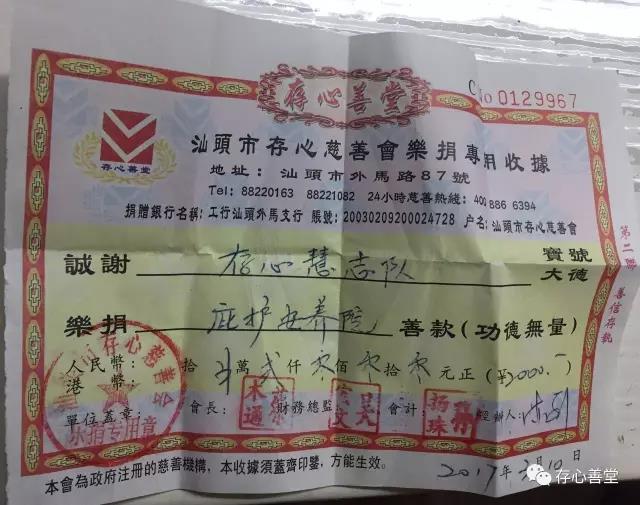 存心善堂
No 0129967
存心善堂
汕頭市存心慈善會樂捐專用收據
地址: 汕頭市外馬路87號
Tel: 88220163 88221082 24小時慈善热綫: 400 886 6394
捐贈銀行名稱: 工行汕頭外馬支行 賬號: 20030209200024728 户名: 汕頭市存心慈善會
誠謝 存心慧志队 寶號 大德
樂捐 庇护安养院 善款(功德無量)
人民幣: 拾 萬 贰 仟 零 佰 零 拾 零 元正 (¥2000.-)
港 幣:
存心慈善会
乐捐专用章
單位蓋章: 會長: 財務總監 會計: 經辦人:
本會為政府注册的慈善機構,本收據須蓋齊印鑒,方能生效。
2017年 月10日
第二聯 善信存執
存心善堂